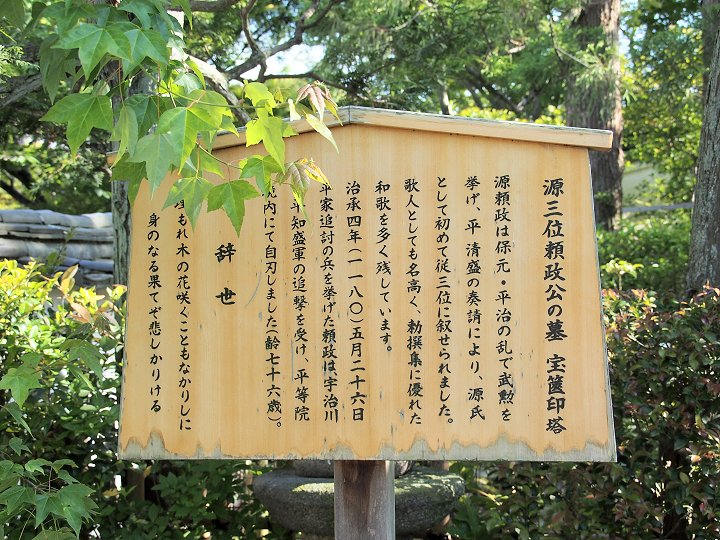 源三位頼政公の墓 宝篋印塔
源頼政は保元・平治の乱で武勲を
挙げ、平 清盛の奏請により、源氏
として初めて従三位に叙せられました。
歌人としても名高く、勅撰集に優れた
和歌を多く残しています。
治承四年(一一八〇)五月二十六日
平家追討の兵を挙げた頼政は、宇治川
平知盛軍の追撃を受け、平等院
境内にて自刃しました(齢七十六歳)。
辞世
埋もれ木の花咲くこともなかりしに
身のなる果てぞ悲しかりける